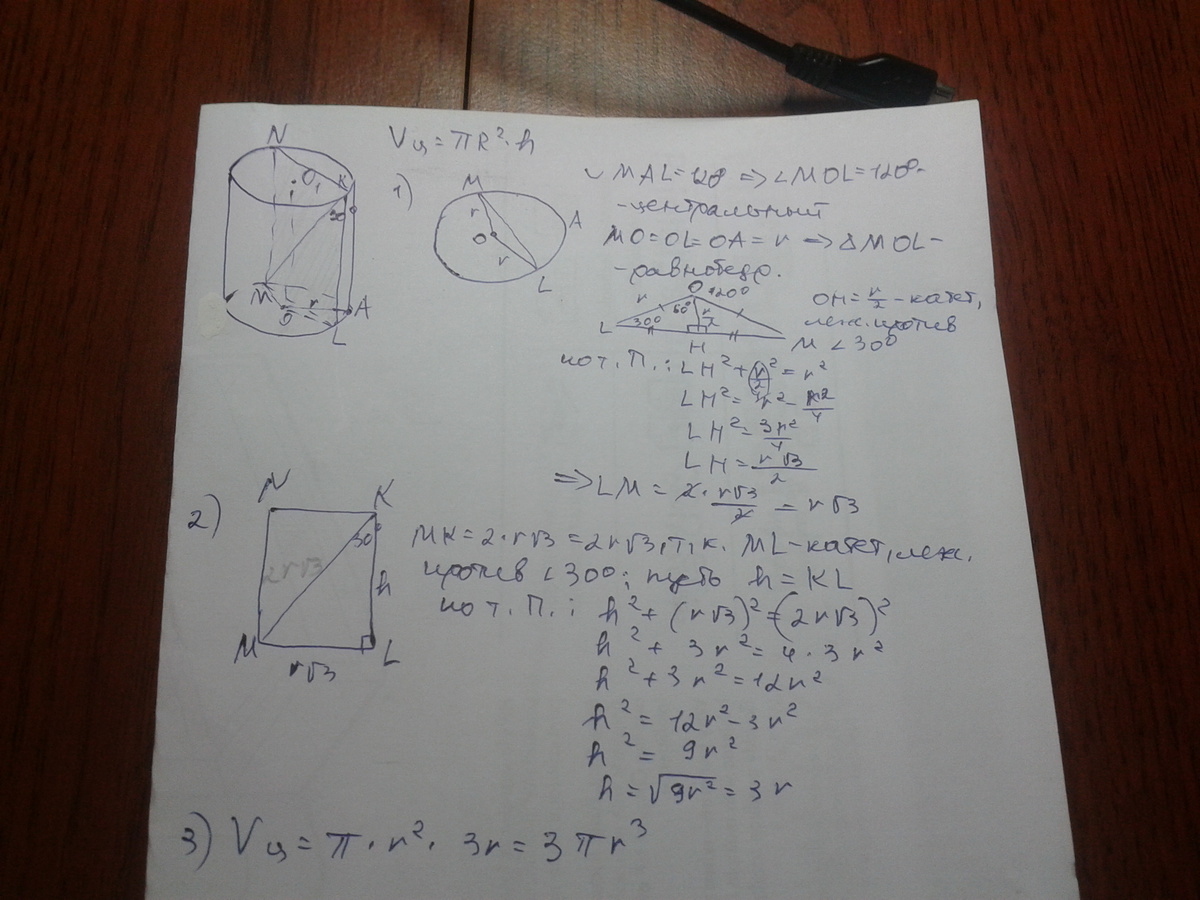 N
O₁
K
30
M
r
A
O
L
Vц = πR²·h
1)
M
r
O
r
A
L
◡ MAL = 120° => ∠MOL = 120° -
- центральный
MO = OL = OA = r => △MOL -
- равнобедр.
O 120°
r
60°
r/2
L
30°
H
M
OH = r/2 - катет,
леж. против
∠30°
по т. П.: LH² + (r/2)² = r²
LH² = r² - r²/4
LH² = 3r²/4
LH = r√3/2
=> LM = 2 · r√3/2 = r√3
2)
N
K
30
2r√3
h
M
L
r√3
MK = 2·r√3 = 2r√3, т. к. ML - катет, леж.
против ∠30°; пусть h = KL
по т. П.: h² + (r√3)² = (2r√3)²
h² + 3r² = 4·3r²
h² + 3r² = 12r²
h² = 12r² - 3r²
h² = 9r²
h = √9r² = 3r
3) Vц = π·r²·3r = 3πr³